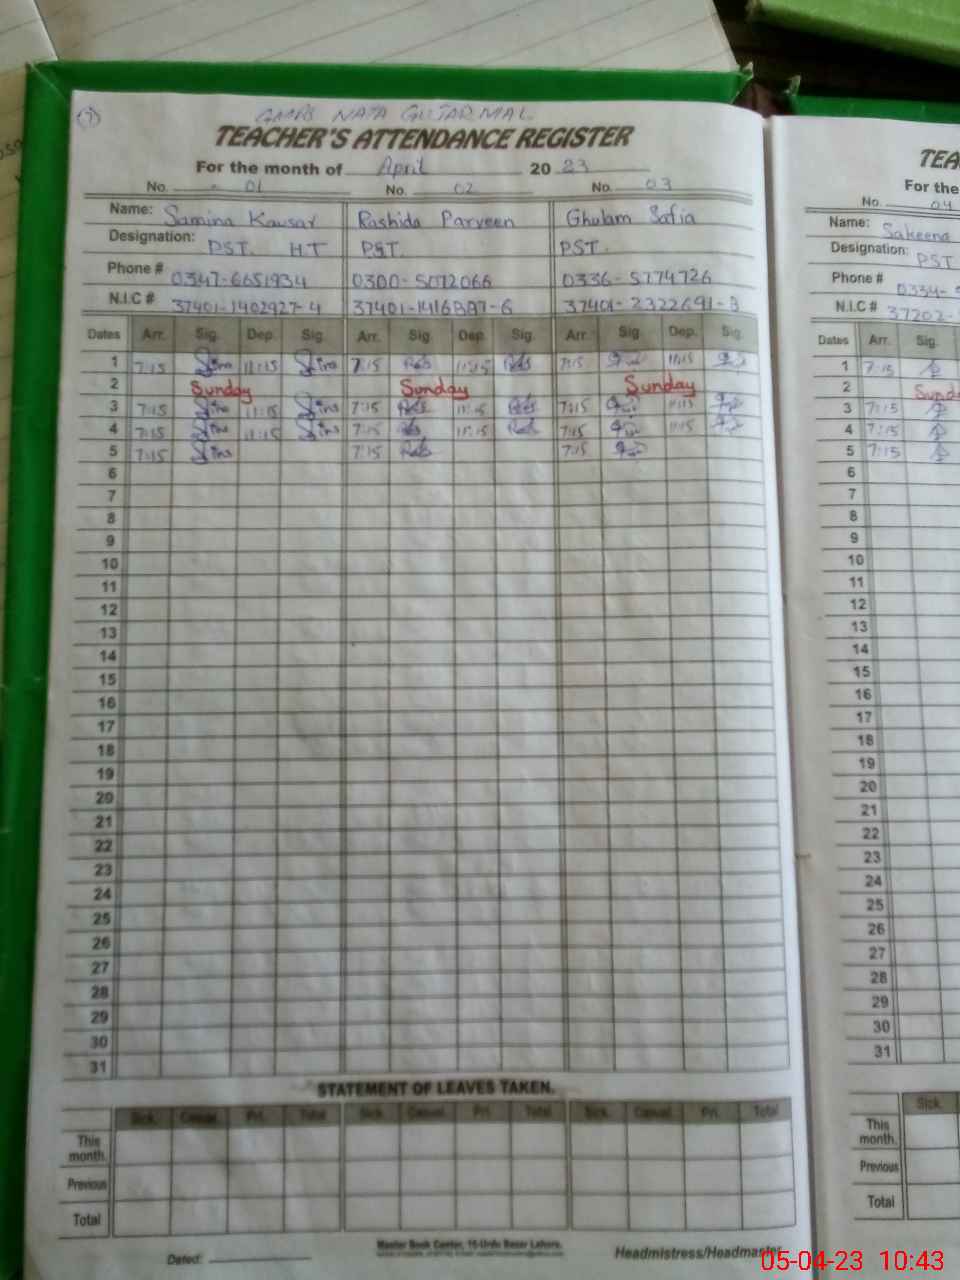 (7)
GMPS NATA GUJAR MAL
TEACHER'S ATTENDANCE REGISTER
For the month of April 2023
No. 01 No. 02 No. 03
Name: Samina Kausar Rashida Parveen Ghulam Safia
Designation: PST. HT PST. PST.
Phone # 0347-6651934 0300-5072066 0336-5774726
N.I.C # 37401-1402927-4 37401- 37401-2322691-3
Dates Arr. Sig. Dep. Sig. Arr. Sig. Dep. Sig. Arr. Sig. Dep. Sig.
1 7:15 11:15 7:15 11:15 7:15 11:15
2 Sunday Sunday Sunday
3 7:15 11:15 7:15 11:15 7:15 11:15
4 7:15 11:15 7:15 11:15 7:15 11:15
5 7:15 7:15 7:15
6
7
8
9
10
11
12
13
14
15
16
17
18
19
20
21
22
23
24
25
26
27
28
29
30
31
STATEMENT OF LEAVES TAKEN.
Sick. Casual. Pri. Total Sick. Casual. Pri. Total Sick. Casual. Pri. Total
This month.
Previous
Total
Master Book Center, 16-Urdu Bazar Lahore.
Dated: Headmistress/Headmaster
TEA
For the
No. 04
Name: Sakeena
Designation: PST
Phone # 0334-
N.I.C # 37202-
Dates Arr. Sig.
1 7:15
2 Sund
3 7:15
4 7:15
5 7:15
6
7
8
9
10
11
12
13
14
15
16
17
18
19
20
21
22
23
24
25
26
27
28
29
30
31
Sick.
This month.
Previous
Total
05-04-23 10:43